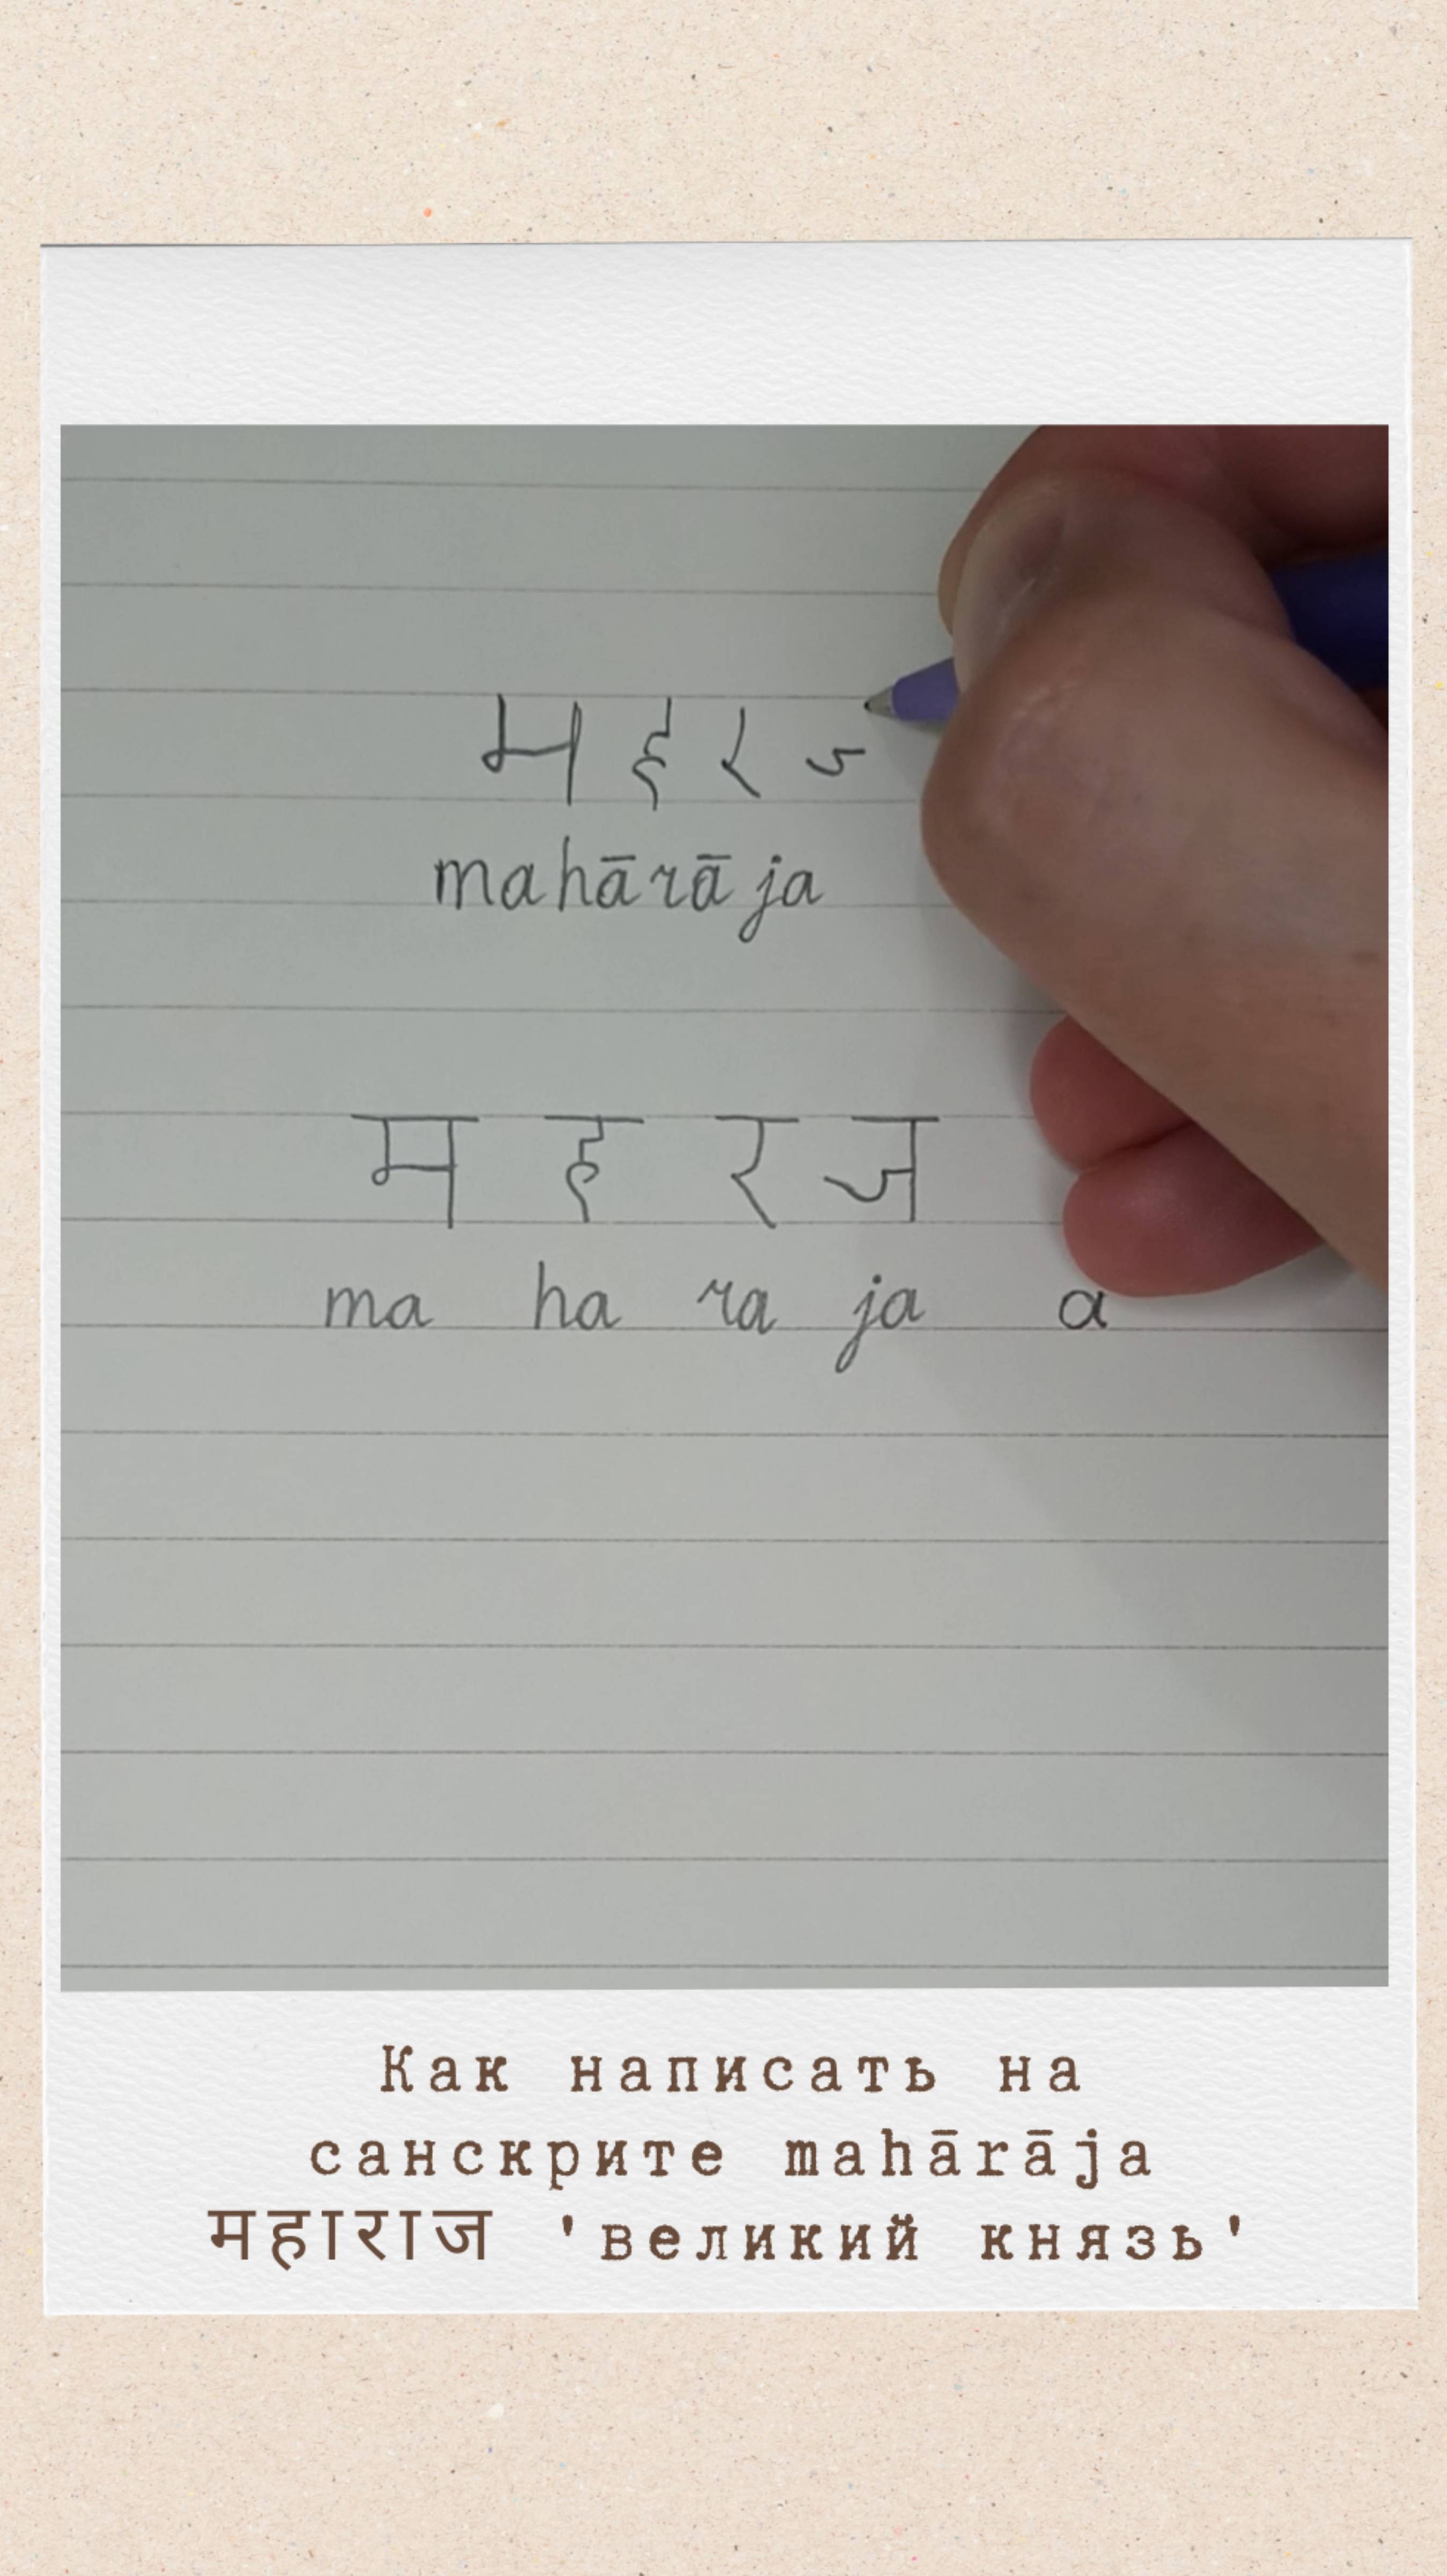 म ह र
mahārāja
म ह र ज
ma ha ra ja a
Как написать на
санскрите mahārāja
महाराज 'великий князь'